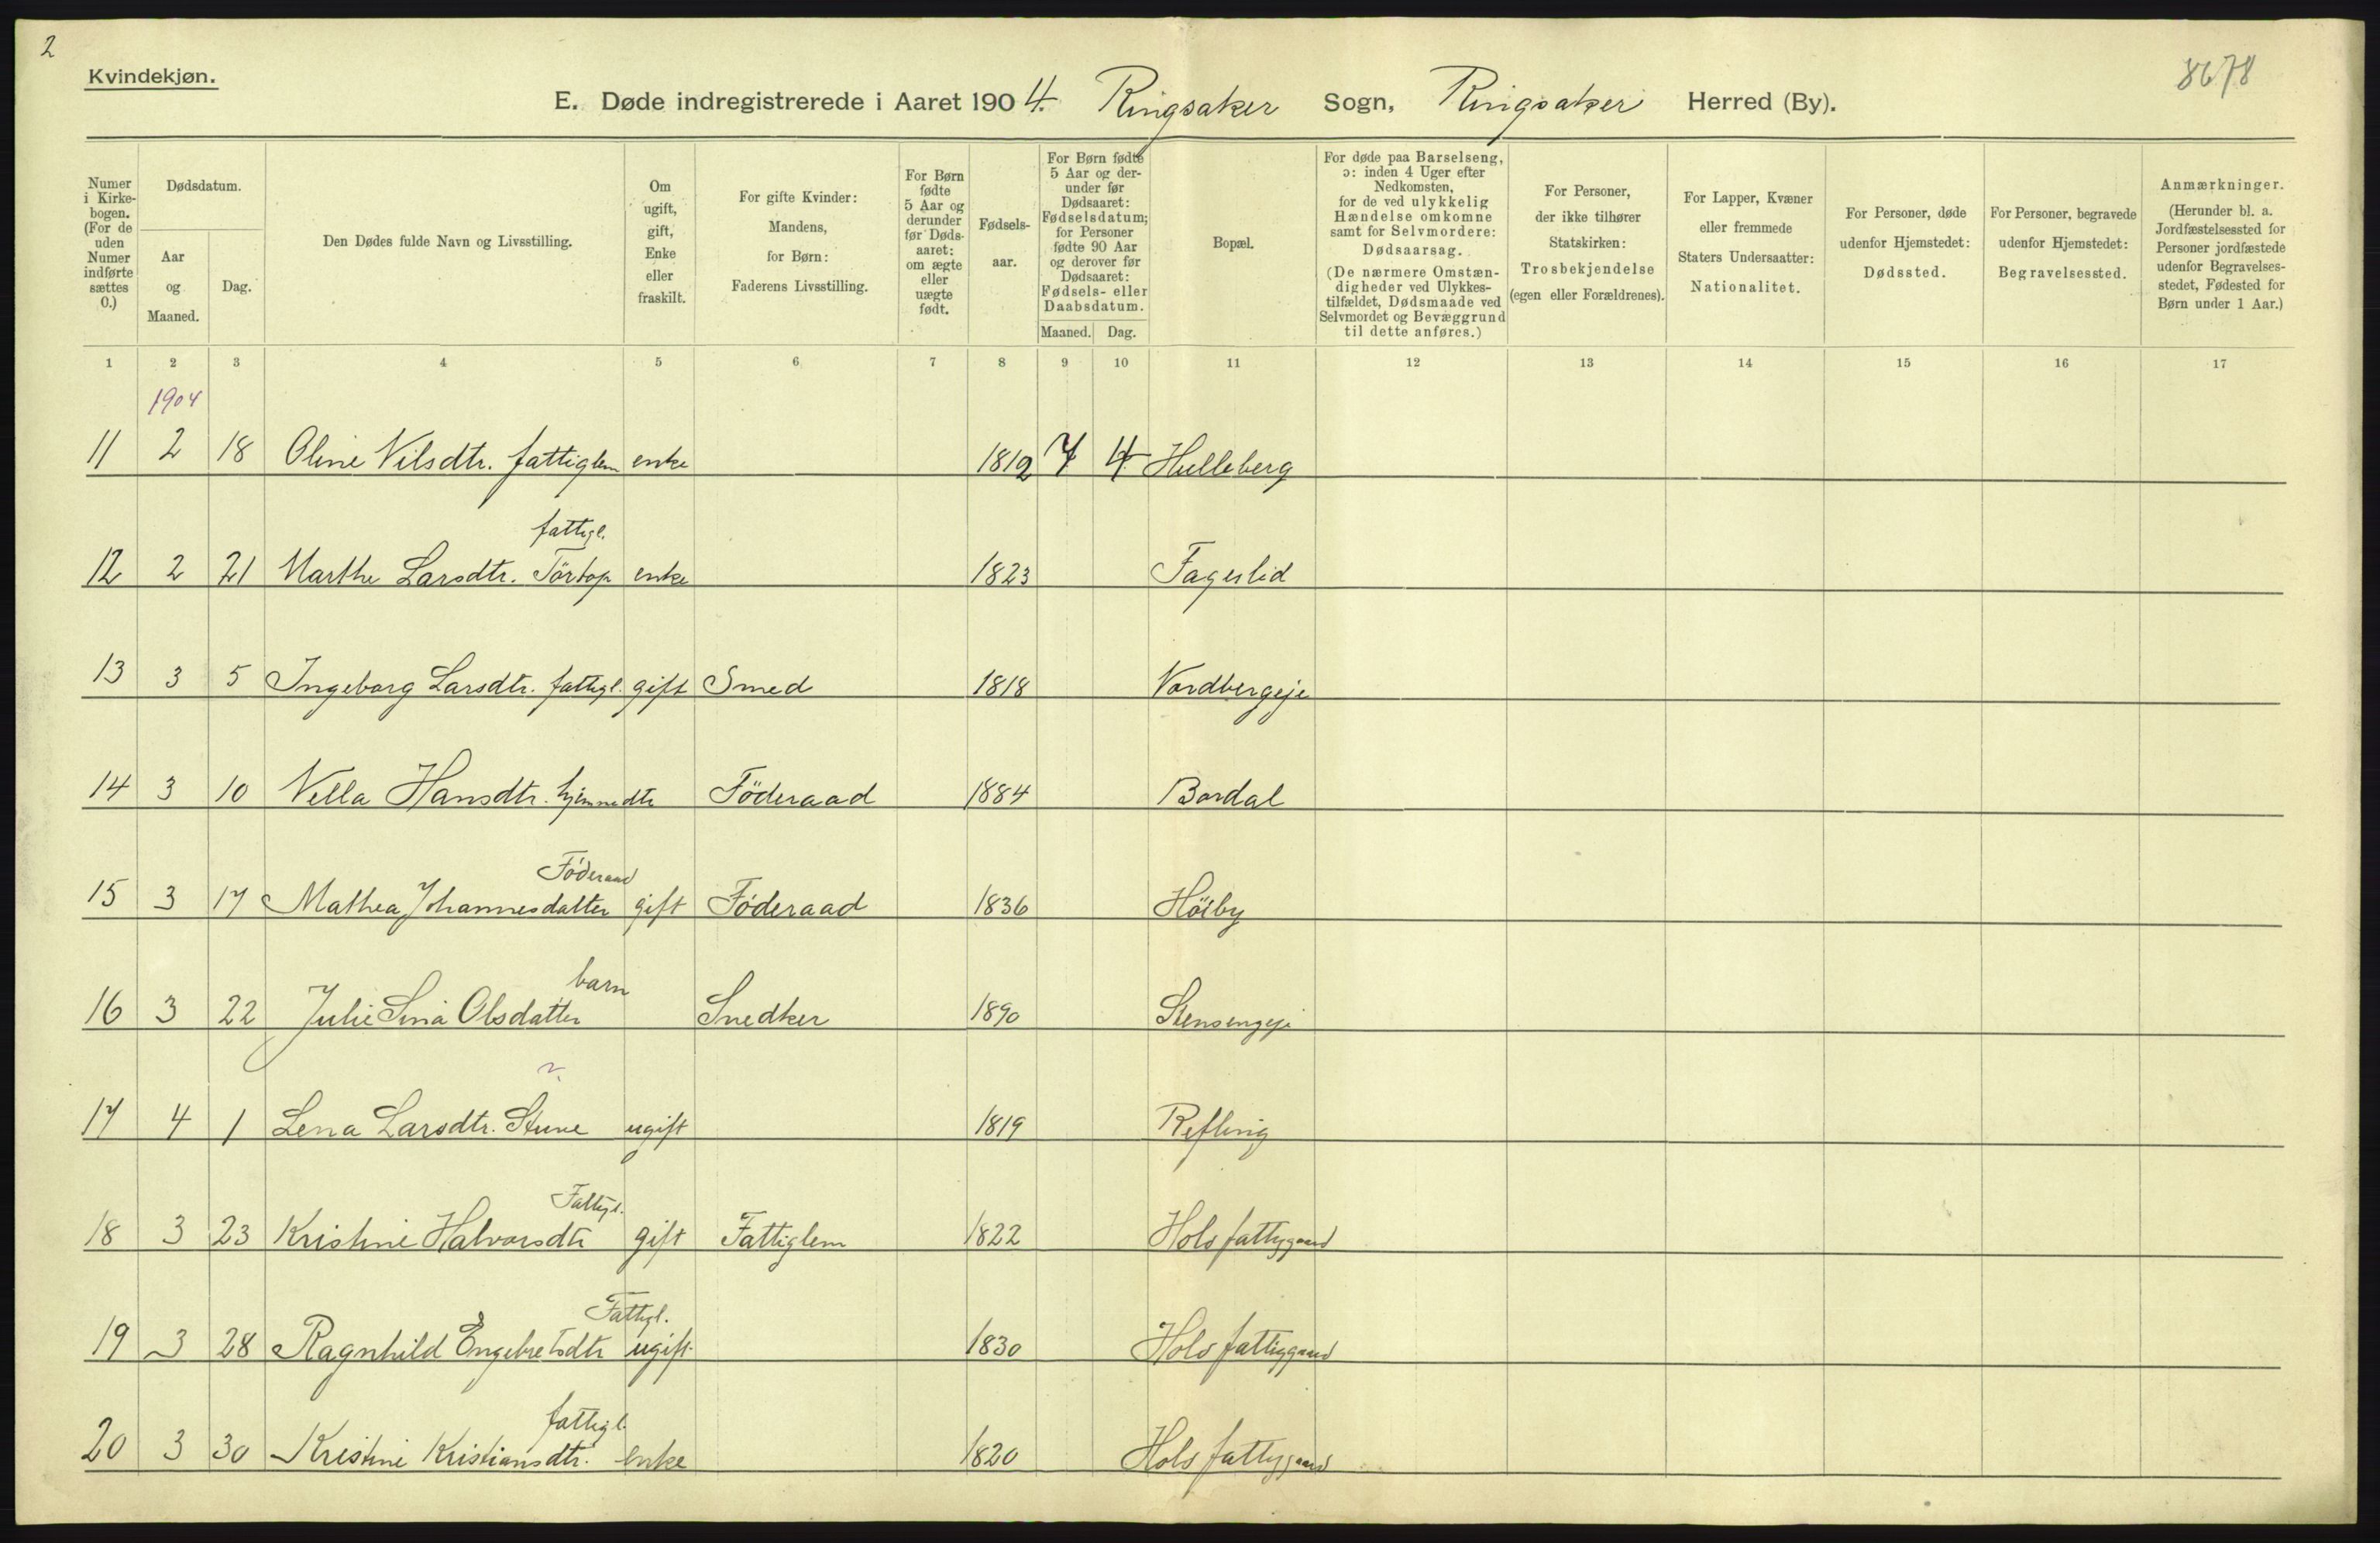 2
Kvindekjøn.
8678
E. Døde indregistrerede i Aaret 1904. Ringsaker Sogn, Ringsaker Herred (By).
Numer i Kirke-bogen. (For de uden Numer indførte sættes 0.)
Dødsdatum.
Aar og Maaned.
Dag.
Den Dødes fulde Navn og Livsstilling.
Om ugift, gift, Enke eller fraskilt.
For gifte Kvinder: Mandens, for Børn: Faderens Livsstilling.
For Børn fødte 5 Aar og derunder før Døds-aaret: om ægte eller uægte født.
Fødsels-aar.
For Børn fødte 5 Aar og der-under før Dødsaaret: Fødselsdatum; for Personer fødte 90 Aar og derover før Dødsaaret: Fødsels- eller Daabsdatum.
Maaned. Dag.
Bopæl.
For døde paa Barselseng, ɔ: inden 4 Uger efter Nedkomsten, for de ved ulykkelig Hændelse omkomne samt for Selvmordere: Dødsaarsag. (De nærmere Omstæn-digheder ved Ulykkes-tilfældet, Dødsmaade ved Selvmordet og Bevæggrund til dette anføres.)
For Personer, der ikke tilhører Statskirken: Trosbekjendelse (egen eller Forældrenes).
For Lapper, Kvæner eller fremmede Staters Undersaatter: Nationalitet.
For Personer, døde udenfor Hjemstedet: Dødssted.
For Personer, begravede udenfor Hjemstedet: Begravelsessted.
Anmærkninger. (Herunder bl. a. Jordfæstelsessted for Personer jordfæstede udenfor Begravelses-stedet, Fødested for Børn under 1 Aar.)
1 2 3 4 5 6 7 8 9 10 11 12 13 14 15 16 17
1904
11 2 18 Oline Nilsdtr. fattiglem enke 1812 7 4 Hulleberg
fattigl.
12 2 21 Marthe Larsdtr. Törtop enke 1823 Fageslid
13 3 5 Ingeborg Larsdtr. fattigl. gift Smed 1818 Nordbergeje
14 3 10 Nella Hansdtr. hjemmedtr Föderaad 1884 Bordal
Föderaad
15 3 17 Mathea Johannesdatter gift Föderaad 1836 Höiby
barn
16 3 22 Julie Sina Olsdatter Snedker 1890 Stensengeje
17 4 1 Lena Larsdtr. Stuve ugift 1819 Refling
Fattigl.
18 3 23 Kristine Halvorsdtr gift Fattiglem 1822 Hols fattiggaard
Fattigl.
19 3 28 Ragnhild Engebretsdtr ugift 1830 Hols fattiggaard
fattigl.
20 3 30 Kristine Kristiansdtr. enke 1820 Hols fattiggaard